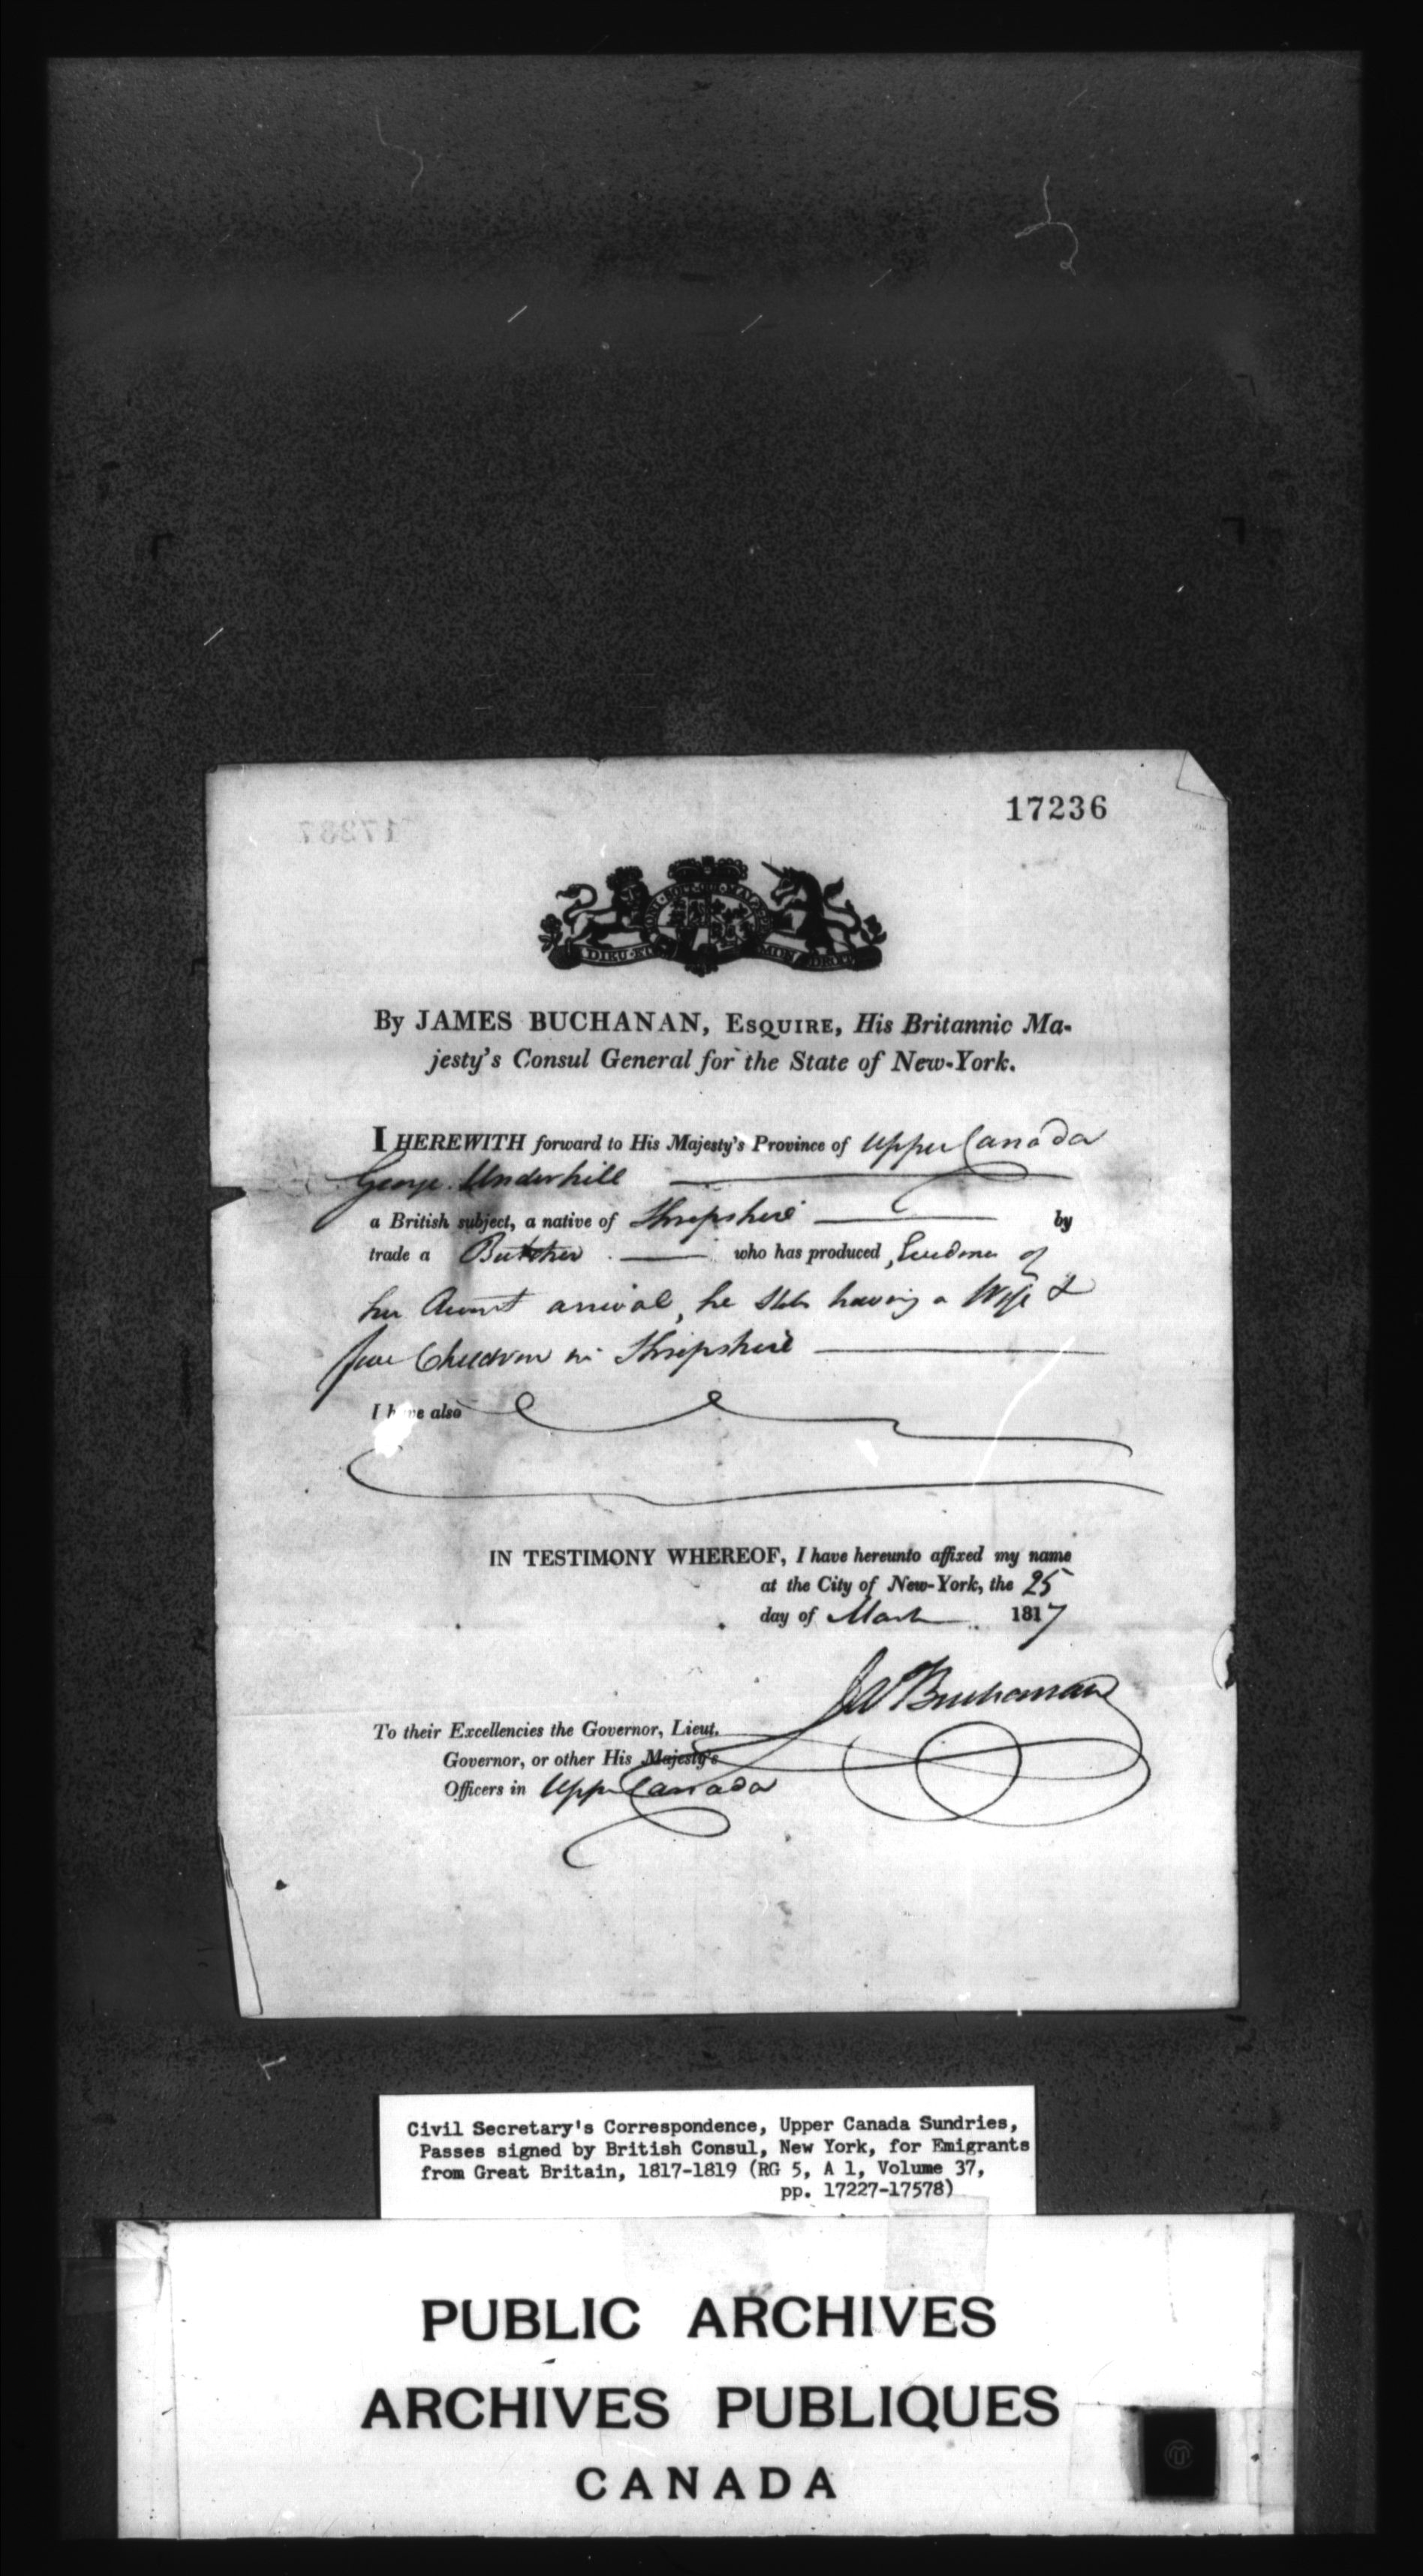 17236
17237
HONI·SOIT·QUI·MAL·Y
DIEU·ET MON DROIT
By JAMES BUCHANAN, ESQUIRE, His Britannic Ma-
jesty's Consul General for the State of New-York.
I HEREWITH forward to His Majesty's Province of Upper Canada
George Underhill
a British subject, a native of Shropshire by
trade a Butcher who has produced Evidence of
his arrival, he states having a Wife &
five Children in Shropshire
I have also
IN TESTIMONY WHEREOF, I have hereunto affixed my name
at the City of New-York, the 25
day of March 1817
Jas Buchanan
To their Excellencies the Governor, Lieut.
Governor, or other His Majesty's
Officers in Upper Canada
Civil Secretary's Correspondence, Upper Canada Sundries,
Passes signed by British Consul, New York, for Emigrants
from Great Britain, 1817-1819 (RG 5, A 1, Volume 37,
pp. 17227-17578)
PUBLIC ARCHIVES
ARCHIVES PUBLIQUES
CANADA